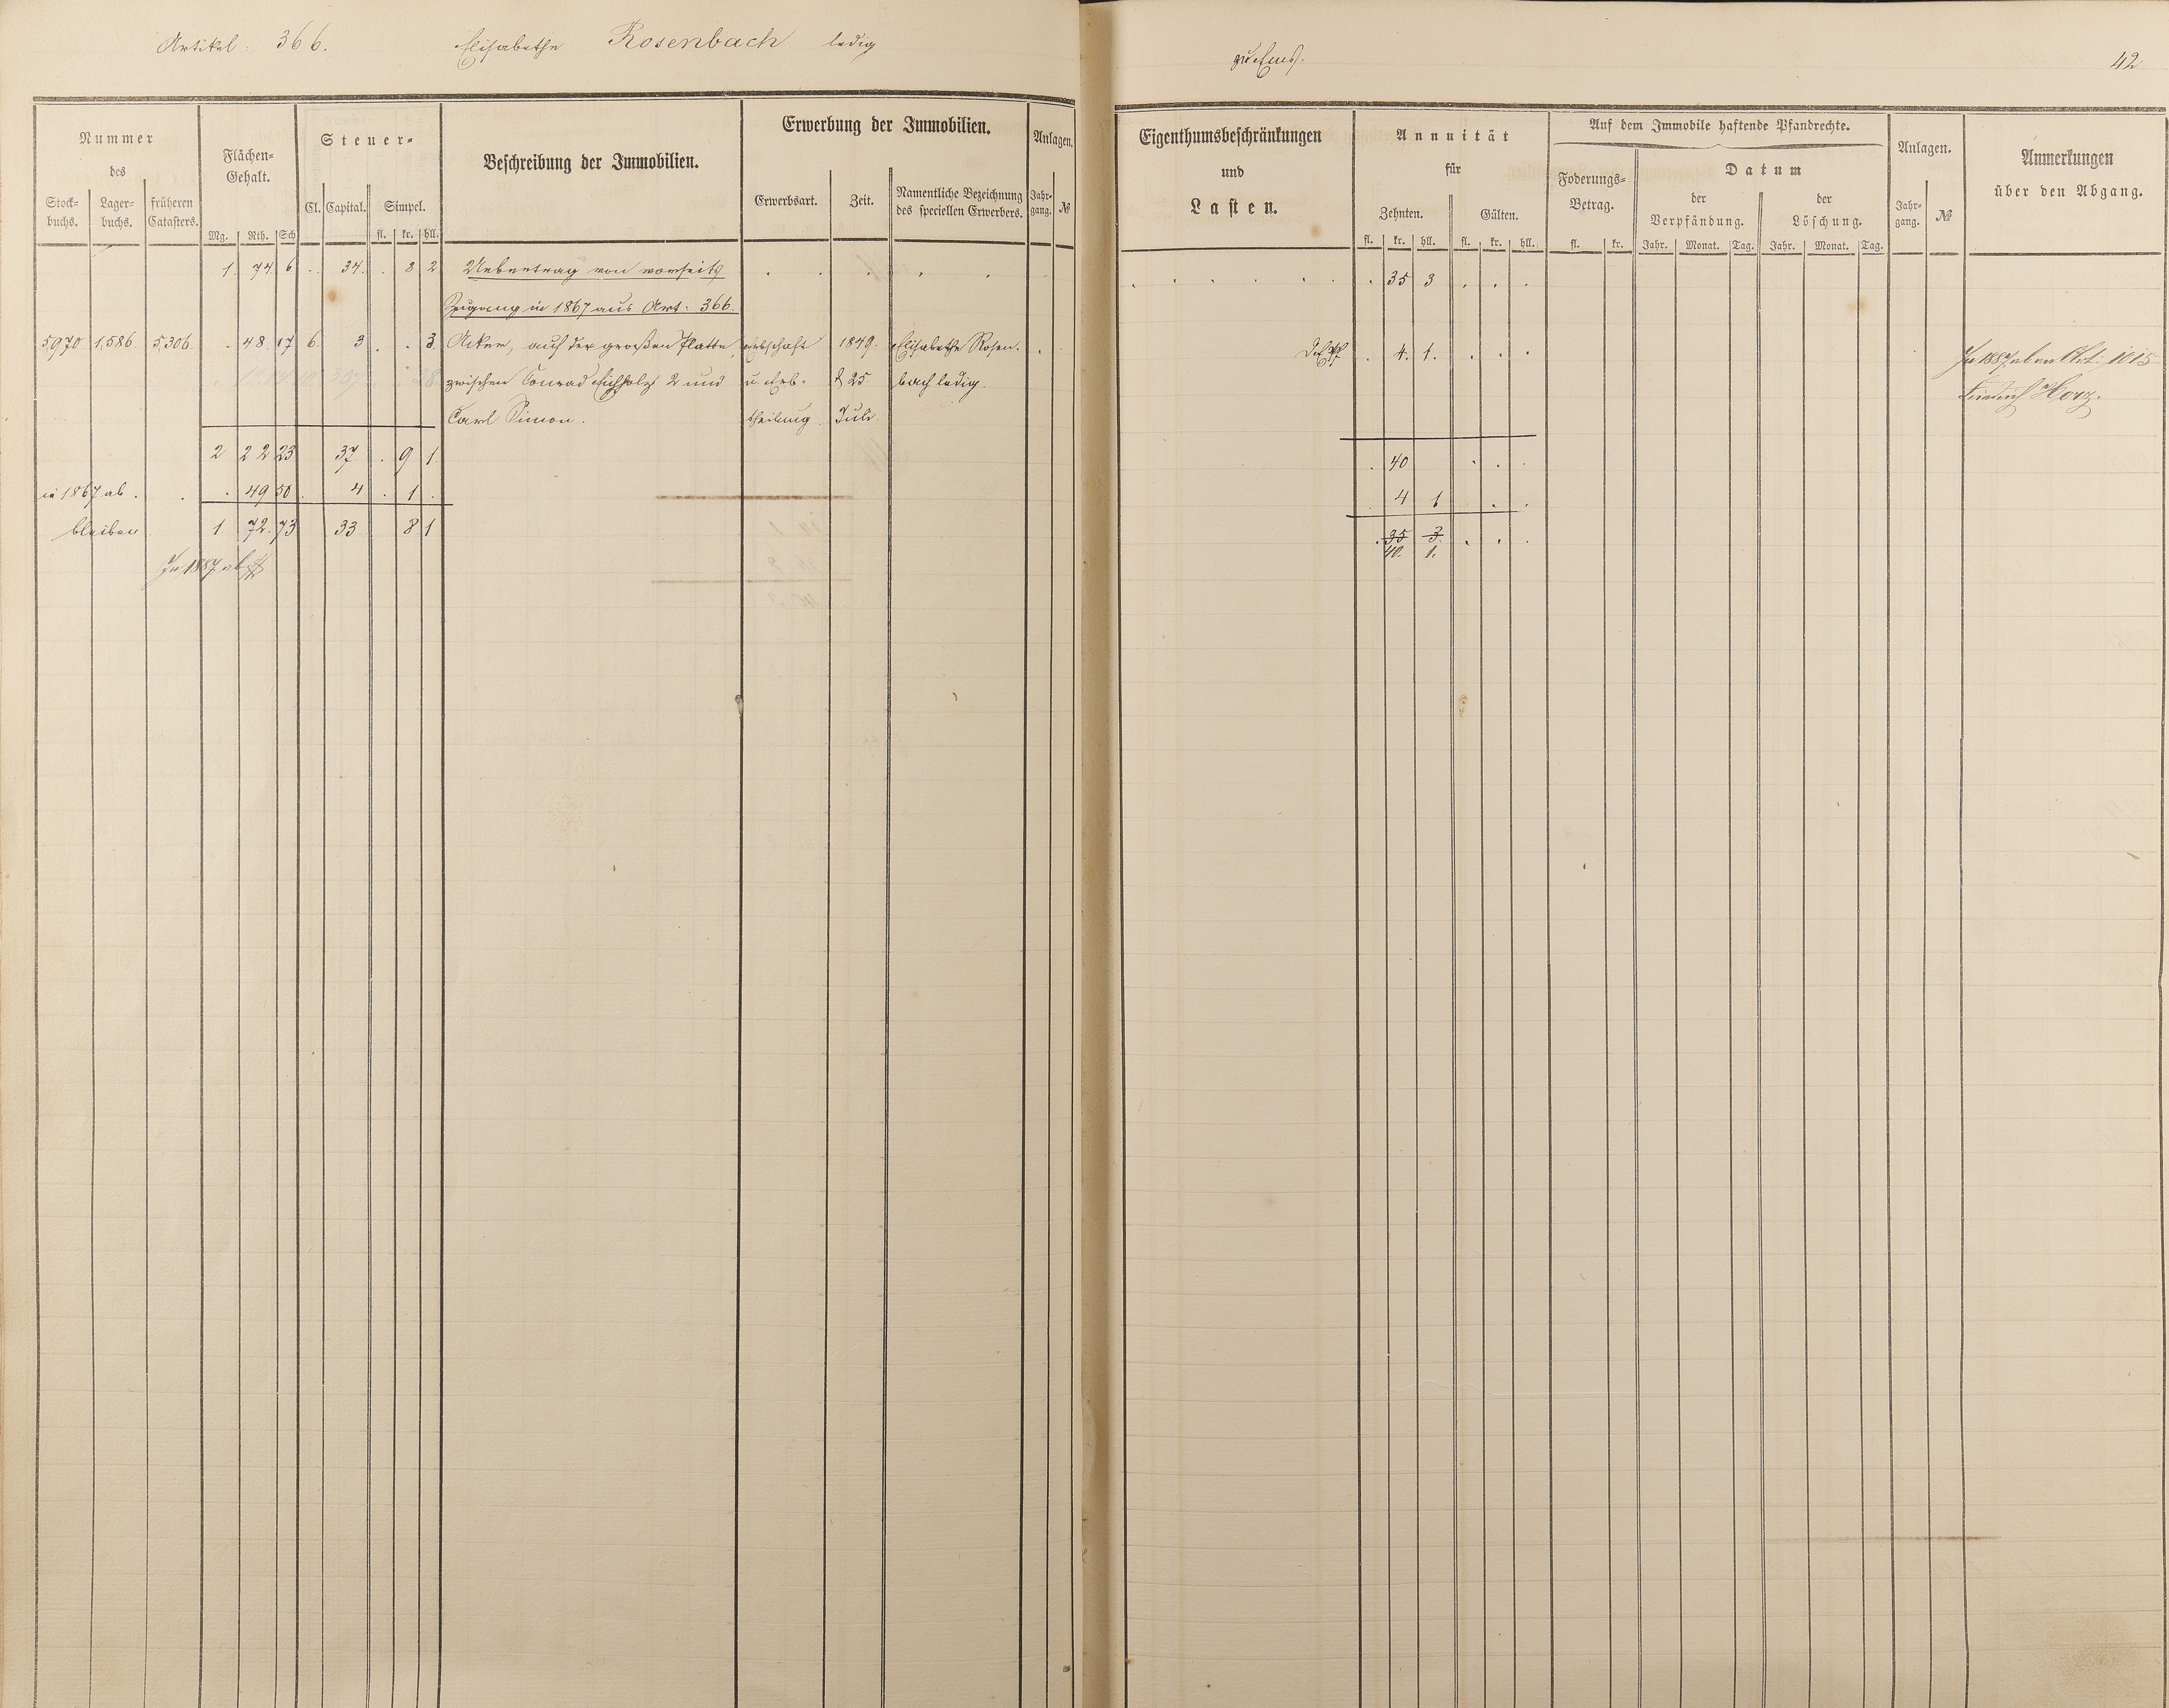 Artikel: 366. Elisabethe Rosenbach ledig zu Ems. 42
Nummer des
Stock-buchs. Lager-buchs. früheren Catasters.
Flächen-Gehalt.
Mg. Rth. Sch
Steuer-
Cl. Capital. Simpel.
fl. kr. hll.
Beschreibung der Immobilien.
Erwerbung der Immobilien.
Erwerbsart. Zeit. Namentliche Bezeichnung des speciellen Erwerbers.
Anlagen.
Jahr-gang. №
Eigenthumsbeschränkungen
und
Lasten.
Annuität
für
Zehnten. Gülten.
fl. kr. hll. fl. kr. hll.
Auf dem Immobile haftende Pfandrechte.
Foderungs-Betrag.
fl. kr.
Datum
der Verpfändung. der Löschung.
Jahr. Monat. Tag. Jahr. Monat. Tag.
Anlagen.
Jahr-gang. №
Anmerkungen
über den Abgang.
1 74 6 . 34. . 8 2 Uebertrag von vorseits . 35 3
Zugang in 1867 aus Art: 366.
5970 1,586 5,306. . 48 17 6. 3 . . 3. Acker, auf der großen Platte, Erbschaft 1849. Elisabethe Rosen- . 4. 1. In 1887 ab an Art: 1015
zwischen Conrad Eichholz 2 und u. Erb- d 25 bach ledig. Friedrich Horz.
Carl Simon. theilung. Juli.
2 22 23 37. . 9 1. . 40
in 1867 ab . . . 49 50 . 4 . 1 . 4 1
bleiben 1 72. 73 33 8 1 . 35 3.
40. 1.
In 1887 ab